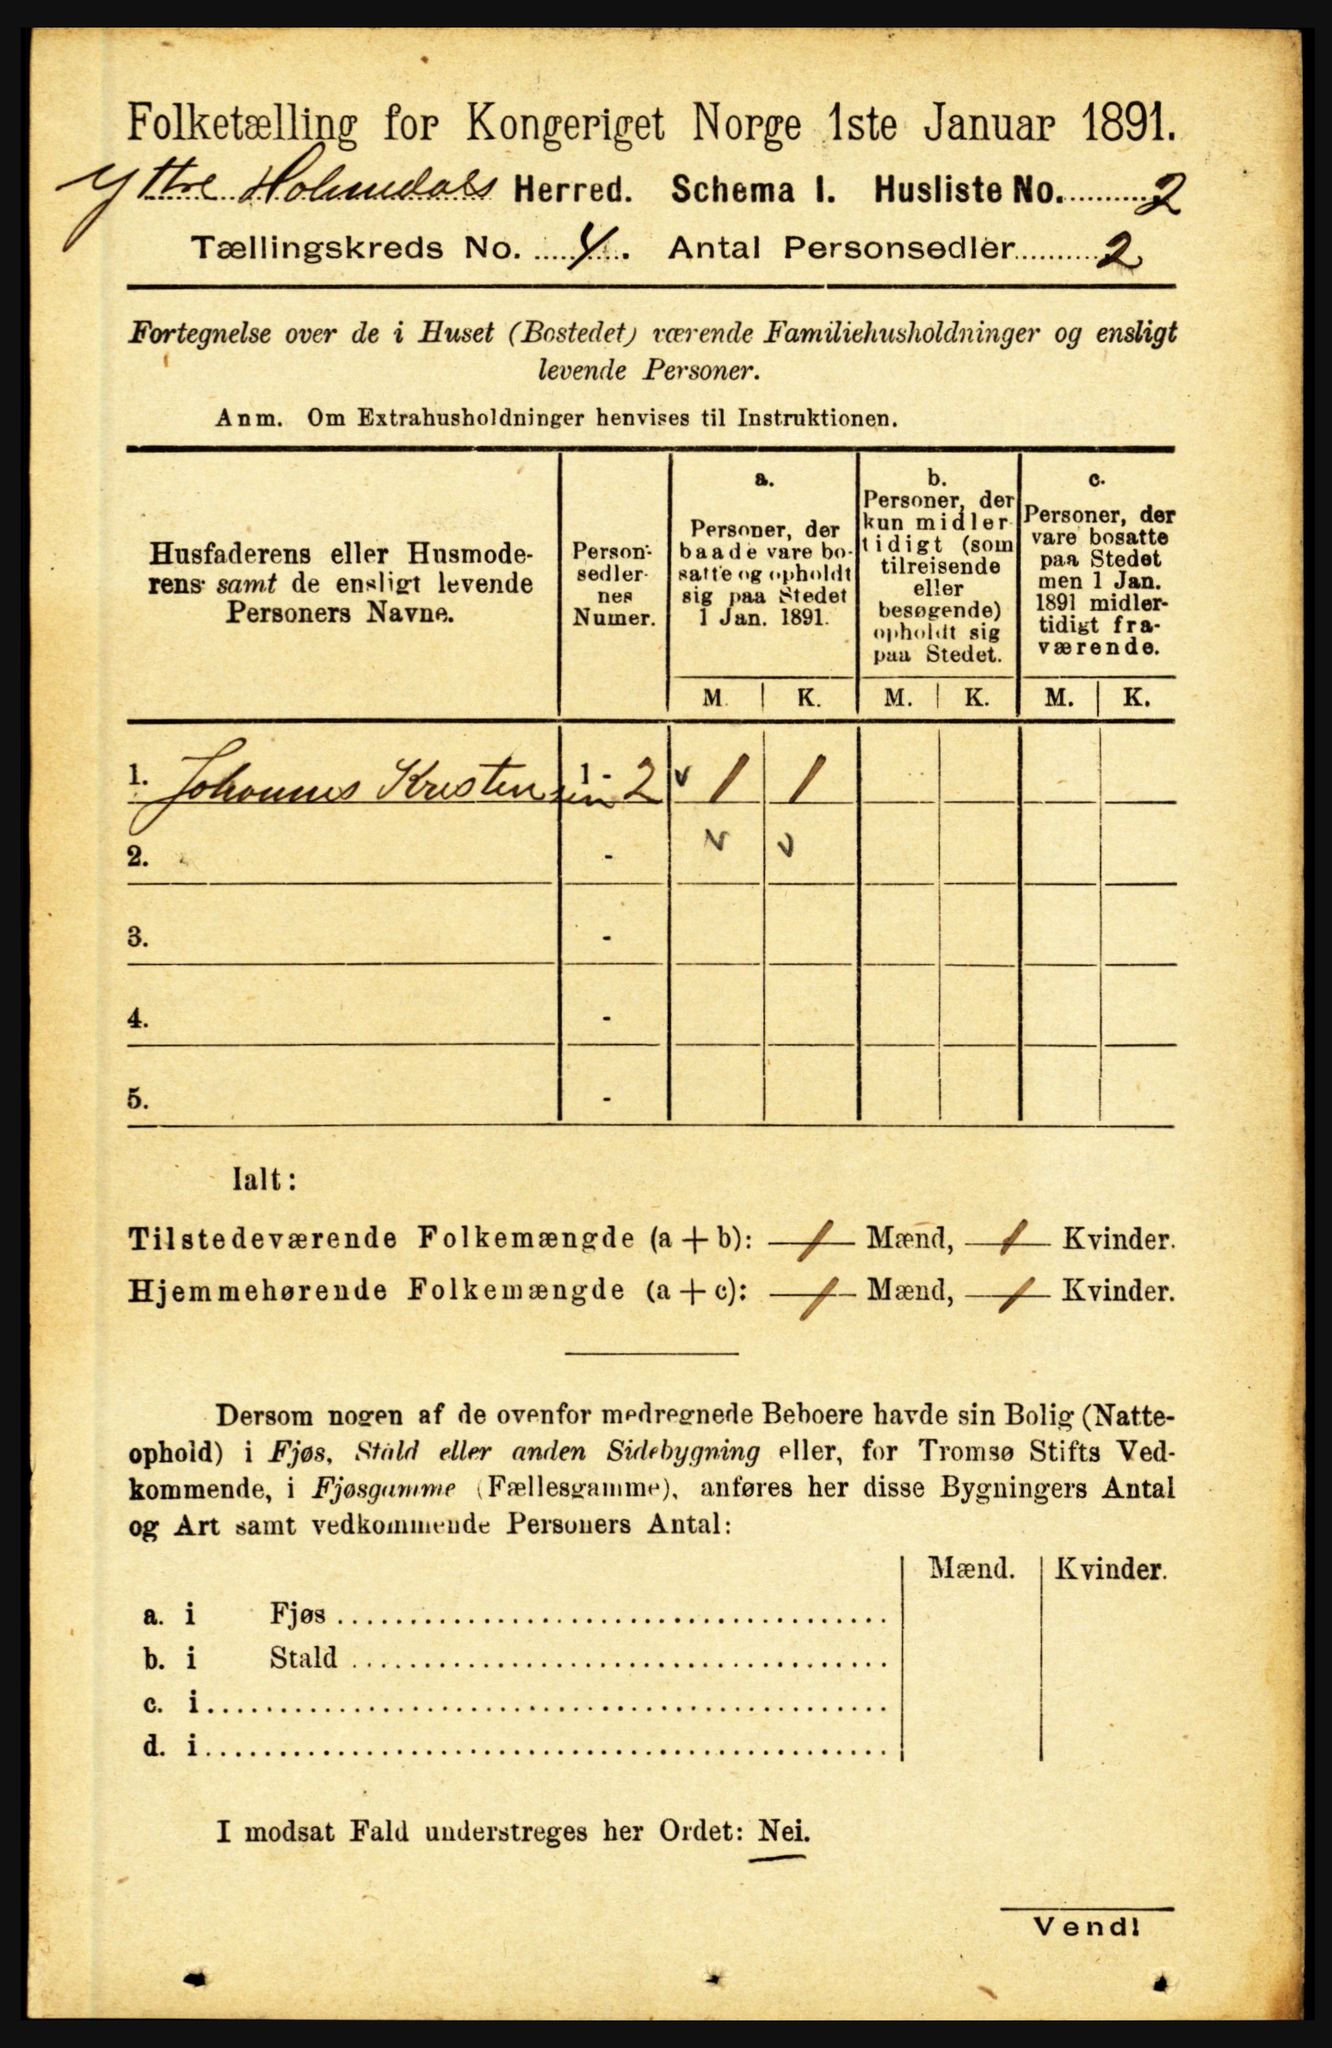 Folketælling for Kongeriget Norge 1ste Januar 1891.
Yttre Holmedals Herred. Schema I. Husliste No. 2
Tællingskreds No. 4. Antal Personsedler 2
Fortegnelse over de i Huset (Bostedet) værende Familiehusholdninger og ensligt
levende Personer.
Anm. Om Extrahusholdninger henvises til Instruktionen.
Husfaderens eller Husmode-
rens samt de ensligt levende
Personers Navne.
Person-
sedler-
nes
Numer.
a.
Personer, der
baade vare bo-
satte og opholdt
sig paa Stedet
1 Jan. 1891.
b.
Personer, der
kun midler-
tidigt (som
tilreisende
eller
besøgende)
opholdt sig
paa Stedet.
c.
Personer, der
vare bosatte
paa Stedet
men 1 Jan.
1891 midler-
tidigt fra-
værende.
M. K. M. K. M. K.
1. Johannes Kristensen 1 - 2 v 1 1
2. - v v
3. -
4. -
5. -
Ialt:
Tilstedeværende Folkemængde (a + b): 1 Mænd, 1 Kvinder.
Hjemmehørende Folkemængde (a + c): 1 Mænd, 1 Kvinder.
Dersom nogen af de ovenfor medregnede Beboere havde sin Bolig (Natte-
ophold) i Fjøs, Stald eller anden Sidebygning eller, for Tromsø Stifts Ved-
kommende, i Fjøsgamme (Fællesgamme), anføres her disse Bygningers Antal
og Art samt vedkommende Personers Antal:
Mænd. Kvinder.
a. i Fjøs
b. i Stald
c. i
d. i
I modsat Fald understreges her Ordet: Nei.
Vend!